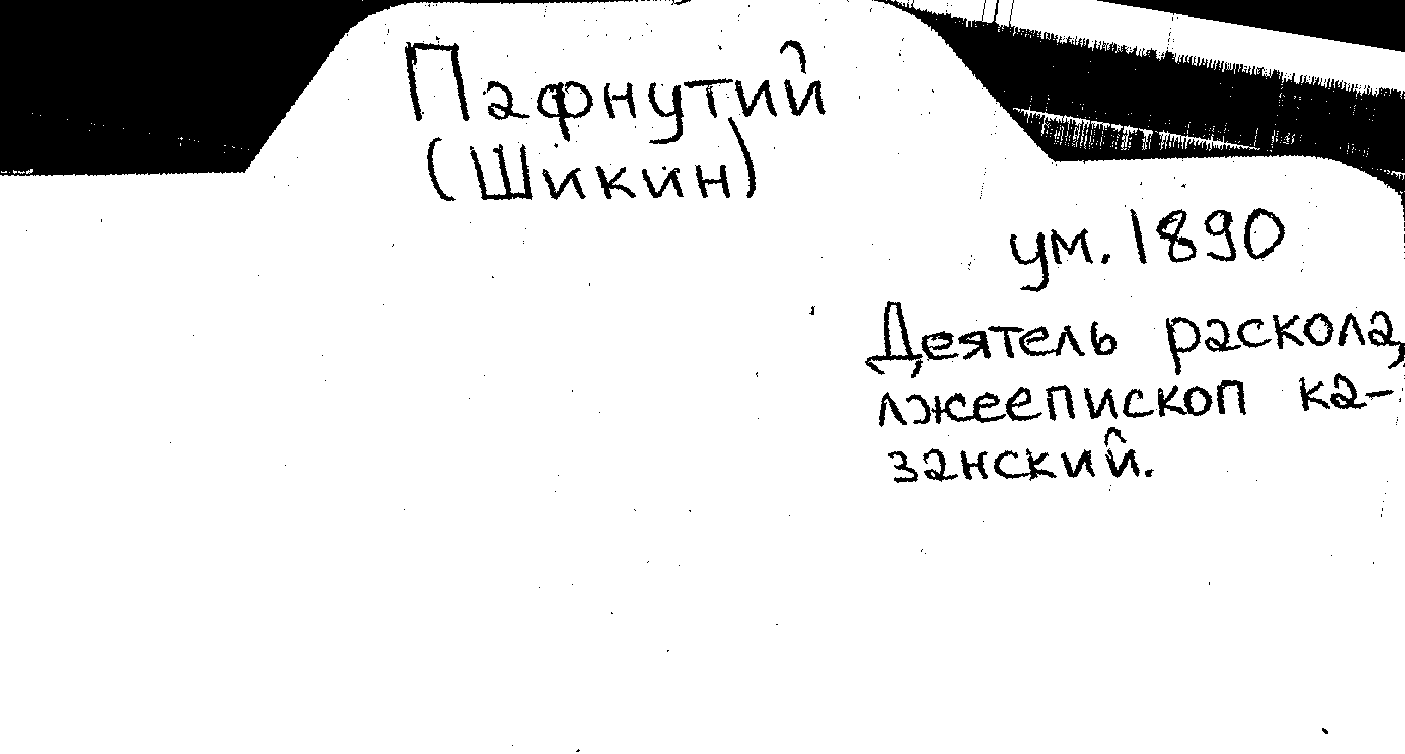 Пафнутий
(Шикин)
ум. 1890
Деятель раскола,
лжеепископ ка-
занский.